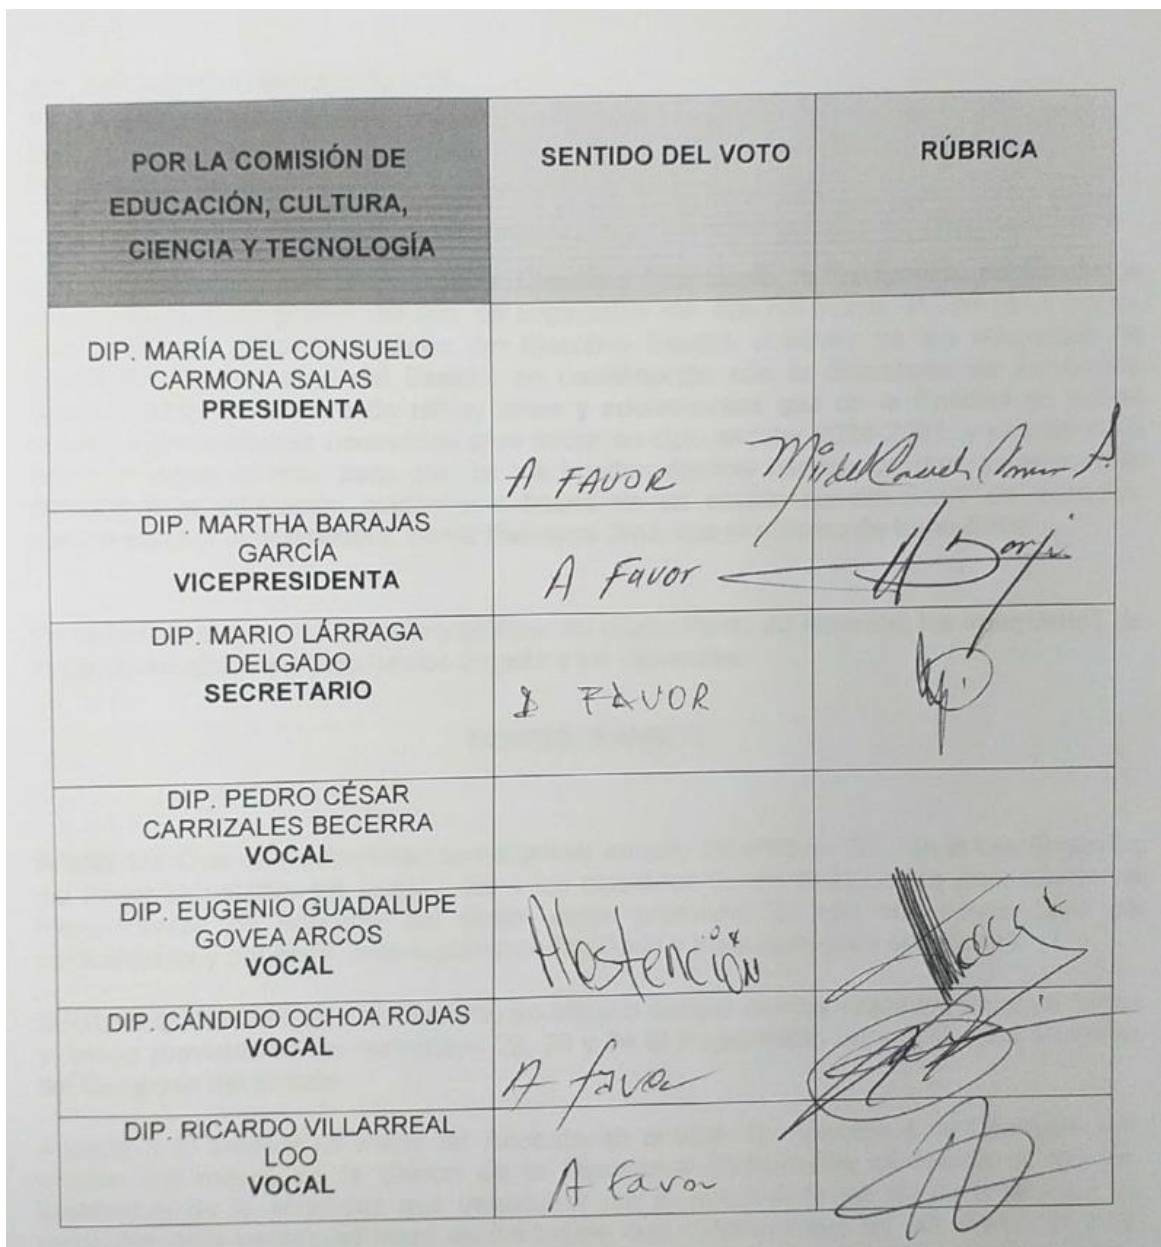 POR LA COMISIÓN DE
EDUCACIÓN, CULTURA,
CIENCIA Y TECNOLOGÍA
SENTIDO DEL VOTO
RÚBRICA
DIP. MARÍA DEL CONSUELO
CARMONA SALAS
PRESIDENTA
A FAVOR
DIP. MARTHA BARAJAS
GARCÍA
VICEPRESIDENTA
A Favor
DIP. MARIO LÁRRAGA
DELGADO
SECRETARIO
A FAVOR
DIP. PEDRO CÉSAR
CARRIZALES BECERRA
VOCAL
DIP. EUGENIO GUADALUPE
GOVEA ARCOS
VOCAL
Abstención
DIP. CÁNDIDO OCHOA ROJAS
VOCAL
A favor
DIP. RICARDO VILLARREAL
LOO
VOCAL
A favor